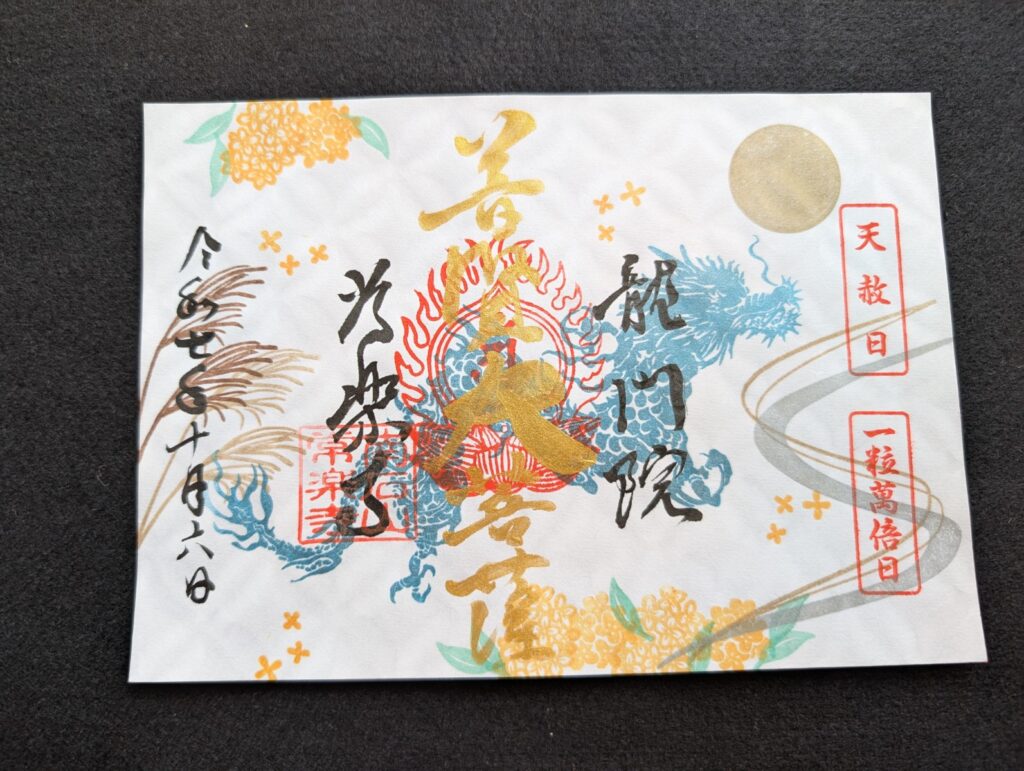 天赦日
一粒萬倍日
龍門院
普賢大菩薩
常楽寺
常楽寺
令和七年十月六日